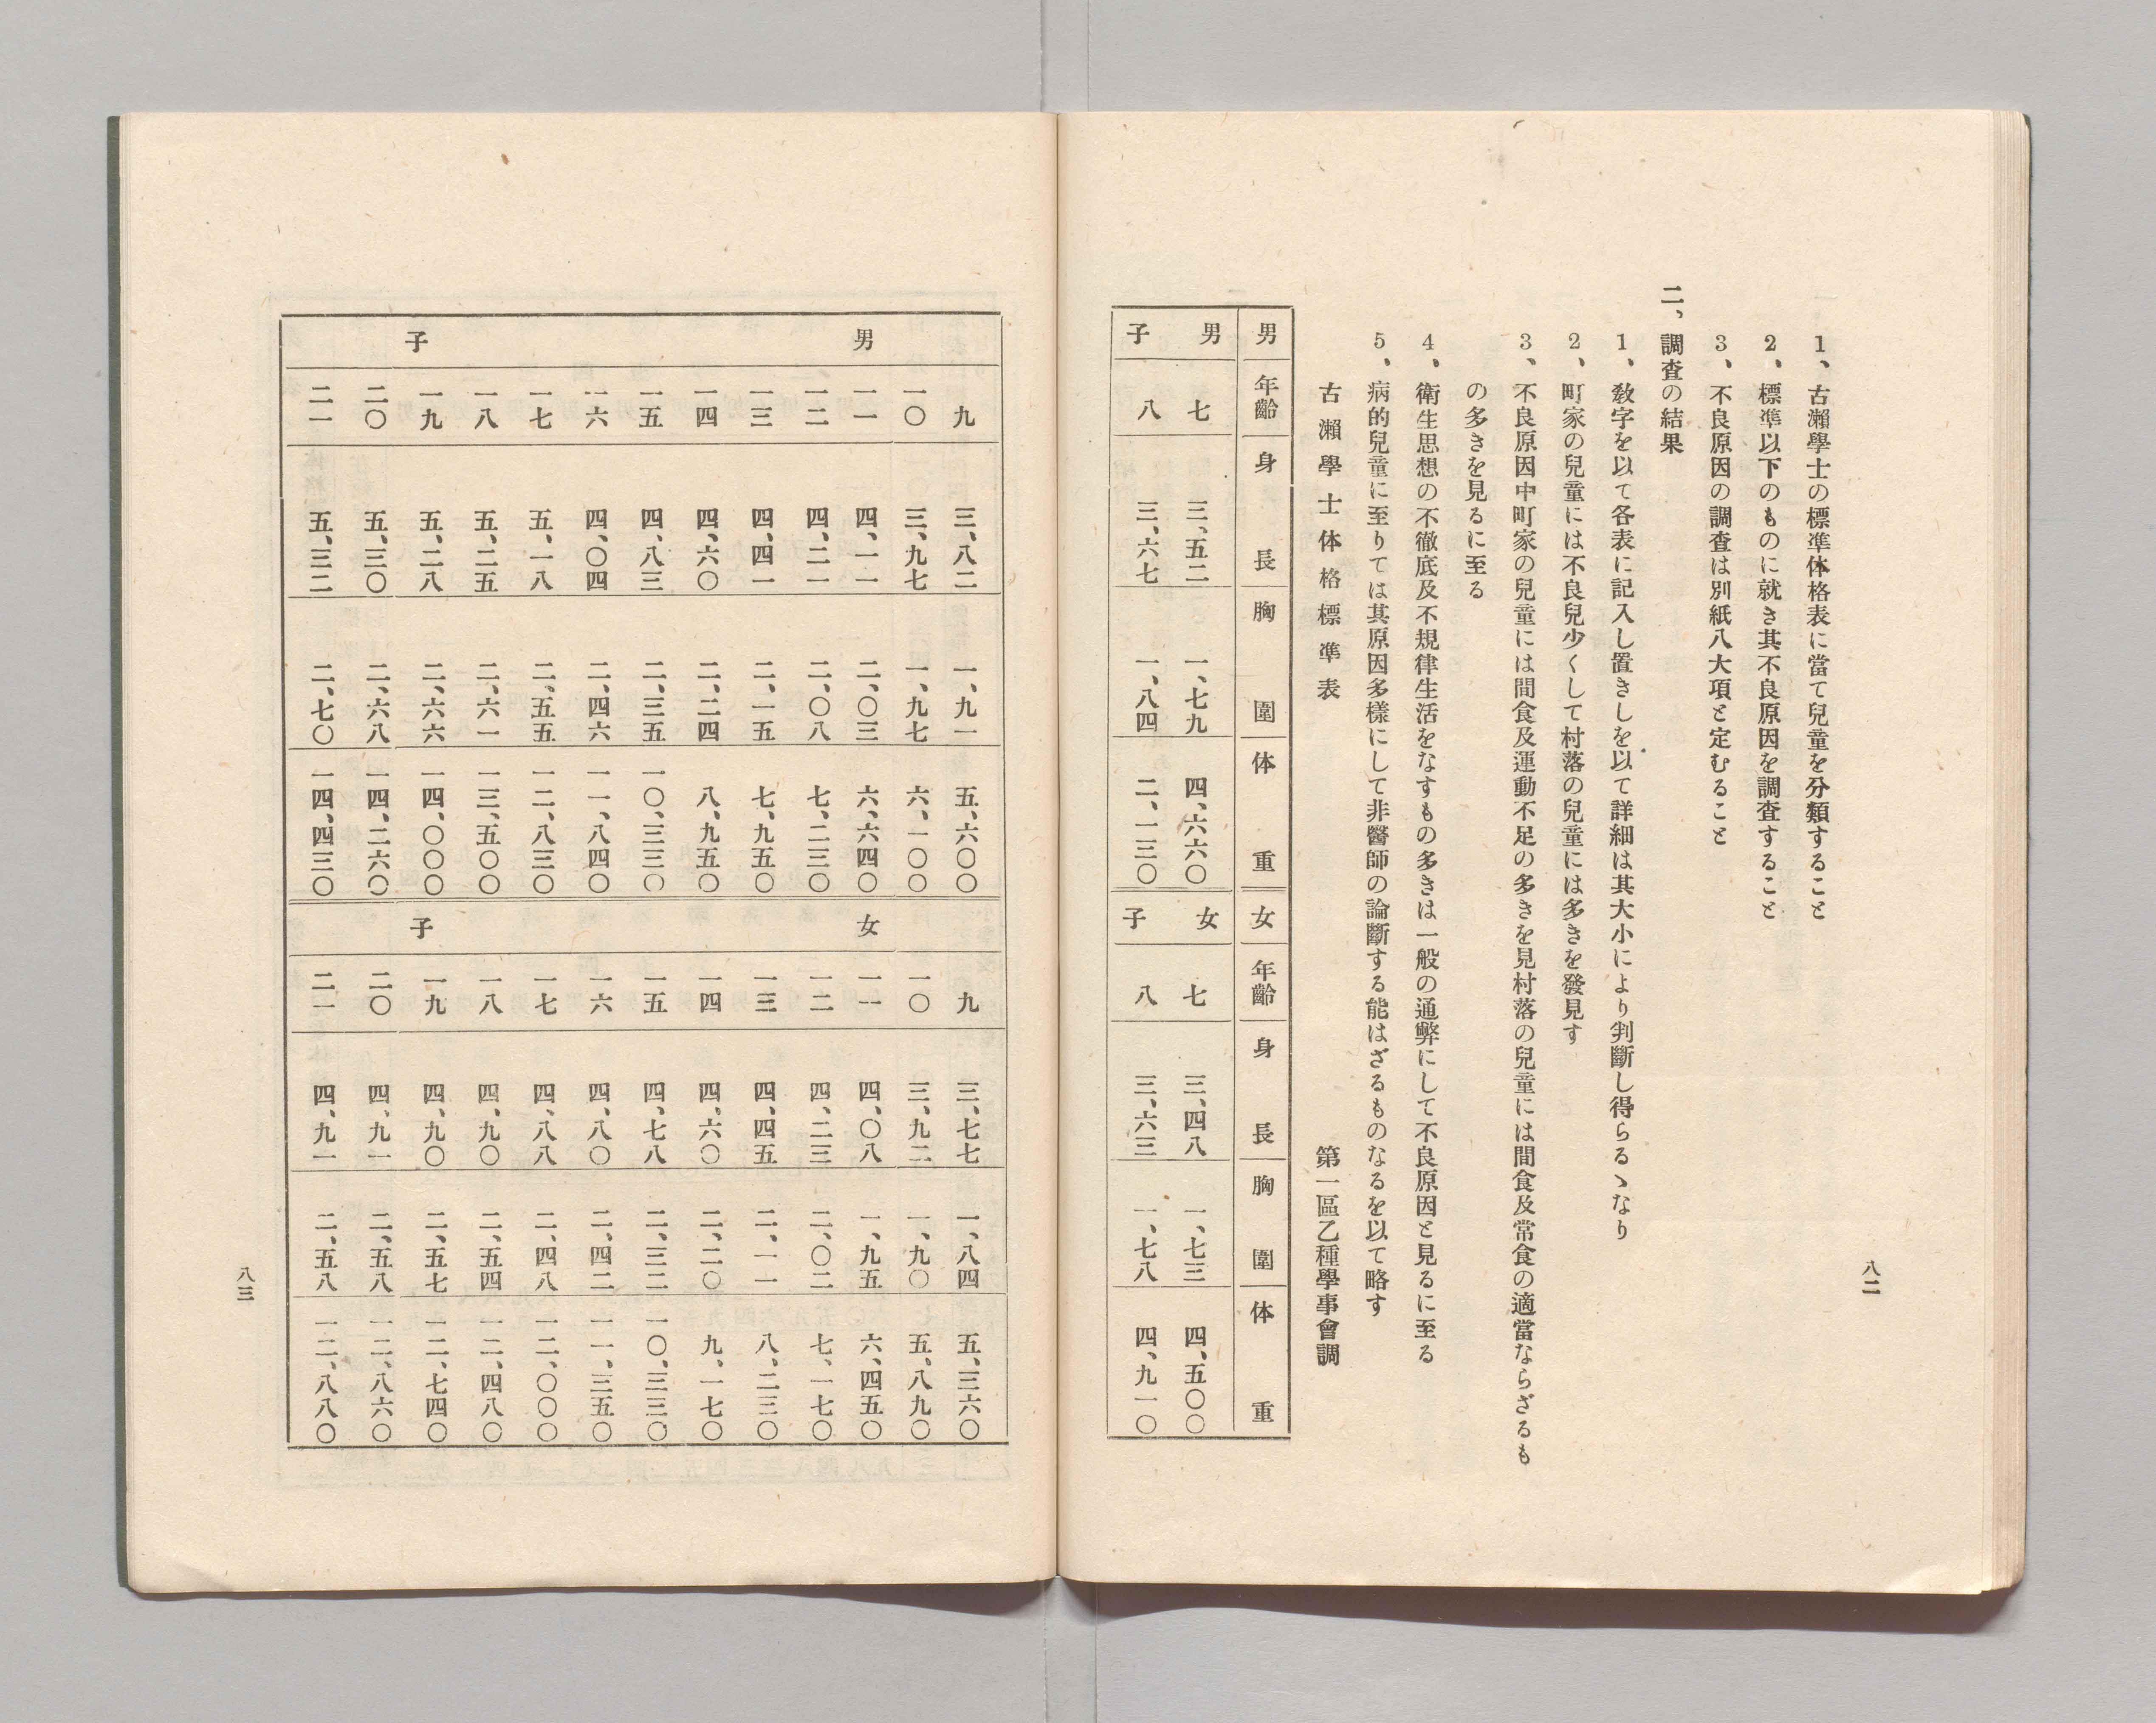 1、古瀨學士の標準体格表に當て兒童を分類すること
2、標準以下のものに就き其不良原因を調査すること
3、不良原因の調査は別紙八大項と定むること
二、調査の結果
1、敎字を以て各表に記入し置きしを以て詳細は其大小により判斷し得らるゝなり
2、町家の兒童には不良兒少くして村落の兒童には多きを發見す
3、不良原因中町家の兒童には間食及運動不足の多きを見村落の兒童には間食及常食の適當ならざるも
の多きを見るに至る
4、衛生思想の不徹底及不規律生活をなすもの多きは一般の通弊にして不良原因と見るに至る
5、病的兒童に至りては其原因多樣にして非醫師の論斷する能はざるものなるを以て略す
古瀨學士体格標準表 第一區乙種學事會調
男 年齡 身長 胸圍 体重 女 年齡 身長 胸圍 体重
男子 七 三、五二 一、七九 四、六六〇 女子 七 三、四八 一、七三 四、五〇〇
八 三、六七 一、八四 二、一三〇 八 三、六三 一、七八 四、九一〇
八二
男子 女子
九 三、八二 一、九一 五、六〇〇 九 三、七七 一、八四 五、三六〇
一〇 三、九七 一、九七 六、一〇〇 一〇 三、九二 一、九〇 五、八九〇
一一 四、一一 二、〇三 六、六四〇 一一 四、〇八 一、九五 六、四五〇
一二 四、二一 二、〇八 七、二三〇 一二 四、二三 二、〇二 七、一七〇
一三 四、四一 二、一五 七、九五〇 一三 四、四五 二、一一 八、二三〇
一四 四、六〇 二、二四 八、九五〇 一四 四、六〇 二、二〇 九、一七〇
一五 四、八三 二、三五 一〇、三三〇 一五 四、七八 二、三二 一〇、三三〇
一六 四、〇四 二、四六 一一、八四〇 一六 四、八〇 二、四二 一一、三五〇
一七 五、一八 二、五五 一二、八三〇 一七 四、八八 二、四八 一二、〇〇〇
一八 五、二五 二、六一 一三、五〇〇 一八 四、九〇 二、五四 一二、四八〇
一九 五、二八 二、六六 一四、〇〇〇 一九 四、九〇 二、五七 一二、七四〇
二〇 五、三〇 二、六八 一四、二六〇 二〇 四、九一 二、五八 一二、八六〇
二一 五、三二 二、七〇 一四、四三〇 二一 四、九一 二、五八 一二、八八〇
八三